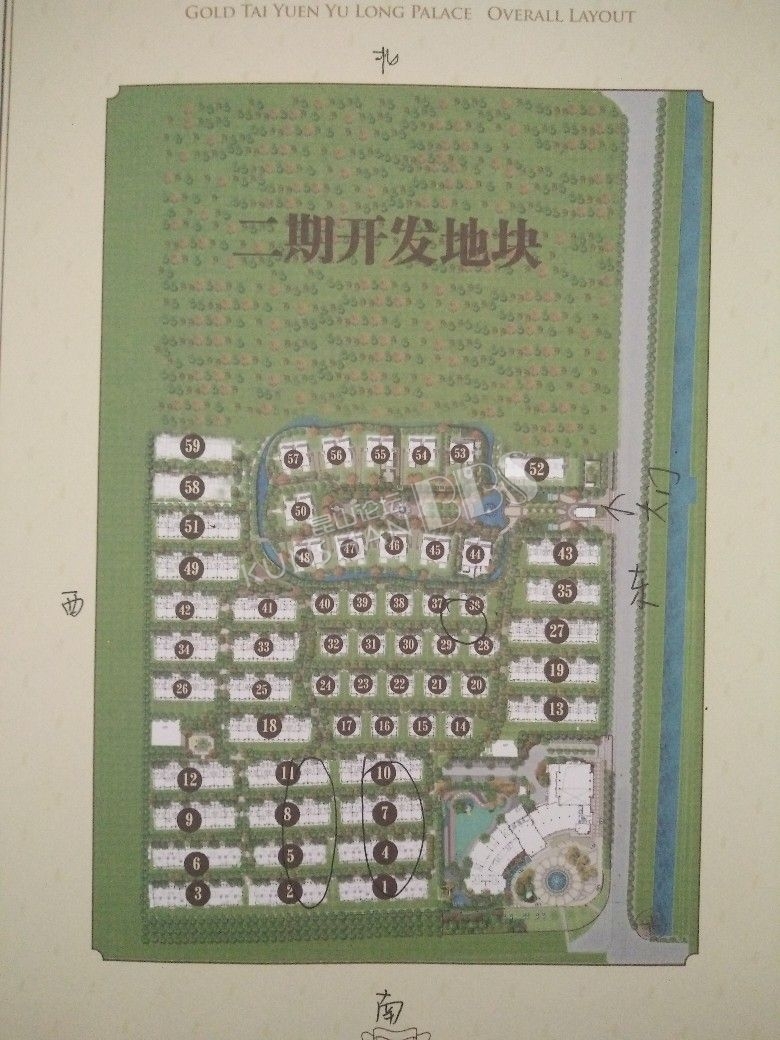 GOLD TAI YUEN YU LONG PALACE OVERALL LAYOUT
北
二期开发地块
59
57 56 55 54 53
52
58
50
51
昆山论坛 BBS
KUNSHAN
大门
48 47 46 45 44
43
49
35
东
西
42 41 40 39 38 37 36
27
34 33 32 31 30 29 28
19
26 25 24 23 22 21 20
13
18 17 16 15 14
12 11 10
9 8 7
6 5 4
3 2 1
南